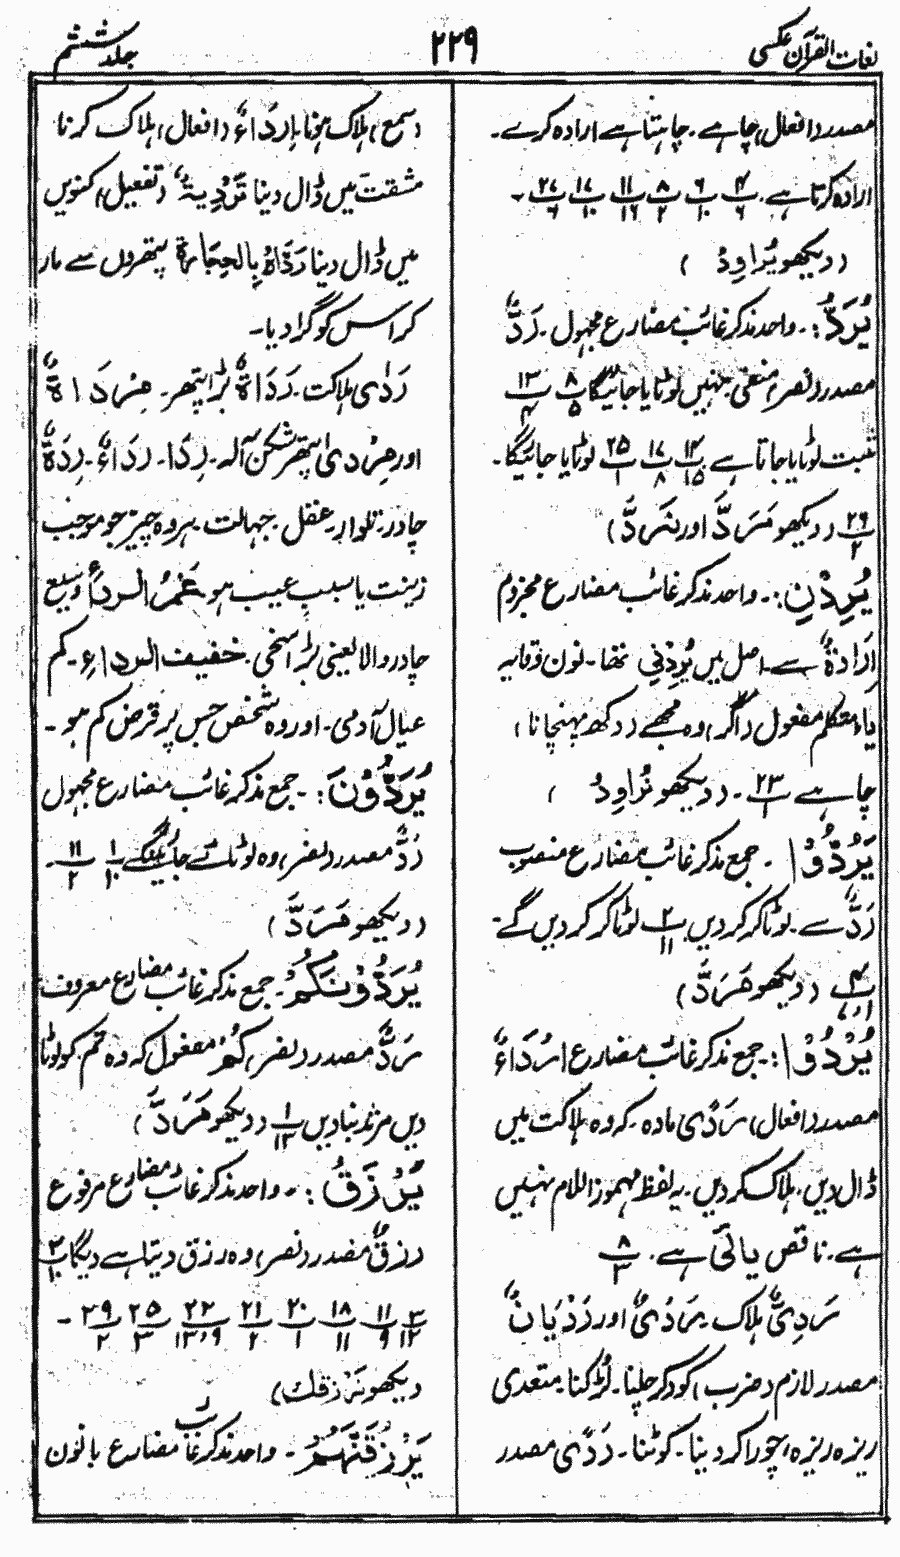 لغات القرآن عکسی
۲۲۹
جلد ششم
مصدر (افعال) چاہے۔ چاہتا ہے ارادہ کرے۔
ارادہ کرتا ہے۔ ۴/۶ ۶/۱۰ ۸/۲ ۱۱/۱۶ ۱۷/۱۰ ۲۷/۶ ۔
(دیکھو یُرَاوِدُ)
یُرَدُّ :۔ واحد مذکر غائب مضارع مجہول۔ رَدٌّ
مصدر (نصر) منفی۔ نہیں لوٹایا جائیگا ۸/۵ ۱۳/۴
مثبت لوٹایا جاتا ہے ۱۴/۱۵ ۱۷/۸ ۲۵/۱ لوٹایا جائیگا۔
۲۶/۲ (دیکھو مَرَدَّ اور نُرَدُّ)
یُرِدْنِ :۔ واحد مذکر غائب مضارع مجزوم
اِرَادَةٌ سے۔ اصل میں یُرِدْنِی تھا۔ نون وقایہ
یاء متکلم مفعول (اگر) وہ مجھے (دکھ پہنچانا)
چاہے ۲۳/۱۔ (دیکھو نُرَاوِدُ)
یَرُدُّوْا ۔ جمع مذکر غائب مضارع منصوب
رَدٌّ سے۔ لوٹا کر کر دیں ۲/۱۱ لوٹا کر کر دیں گے۔
۴/۱۰،۱ (دیکھو مَرَدَّ)
یُرْدُوْا :۔ جمع مذکر غائب مضارع اِرْدَاءٌ
مصدر (افعال) رَدًی مادہ۔ کہ وہ ہلاکت میں
ڈال دیں، ہلاک کر دیں۔ یہ لفظ مہموز اللام نہیں
ہے۔ ناقص یائی ہے۔ ۸/۳
رَدِیَّ ہلاک۔ رَدًیٌ اور رَدْیَانٌ
مصدر لازم (ضرب) کود کر چلنا۔ لڑکنا۔ متعدی
ریزہ ریزہ، چورا کر دینا۔ کوٹنا۔ رَدًی مصدر
(سمع) ہلاک ہونا۔ اِرْدَاءٌ (افعال) ہلاک کرنا
مشقت میں ڈال دینا تَرْدِیَةٌ (تفعیل) کنویں
میں ڈال دینا رَدَّاهُ بِالْحِجَارَةِ پتھروں سے مار
کر اس کو گرا دیا۔
رَدًی ہلاکت۔ رَدَاةٌ بڑا پتھر۔ مِرْدَاةٌ
اور مِرْدًی پتھر شکن آلہ۔ رِدًا۔ رِدَاءٌ۔ رِدَةٌ
چادر۔ تلوار۔ عقل۔ جہالت۔ ہر وہ چیز جو موجب
زینت یا سبب عیب ہو۔ غَمْرُ الرِدَاءِ وسیع
چادر والا یعنی بڑا سخی۔ خفیف الرداءِ۔ کم
عیال آدمی۔ اور وہ شخص جس پر قرض کم ہو۔
یُرَدُّوْنَ :۔ جمع مذکر غائب مضارع مجہول
رَدٌّ مصدر (نصر) وہ لوٹائے جائینگے ۱/۱۰ ۱۱/۲۔
(دیکھو مَرَدَّ)
یَرُدُّوْنَكُمْ۔ جمع مذکر غائب مضارع معروف
رَدٌّ مصدر (نصر) کُمْ مفعول کہ وہ تم کو لوٹا
دیں مرتد بنا دیں ۱/۱۳ (دیکھو مَرَدَّ)
یَرْزُقُ :۔ واحد مذکر غائب مضارع مرفوع
رزقٌ مصدر (نصر) وہ رزق دیتا ہے دیگا ۲/۱۰
۳/۱۲ ۱۱/۹ ۱۸/۱۱ ۲۰/۱ ۲۱/۲ ۲۲/۱۳،۹ ۲۵/۳ ۲۹/۲ ۔
دیکھو نَرْزُقُكَ)
یَرْزُقَنَّهُمْ ۔ واحد مذکر غائب مضارع بانون